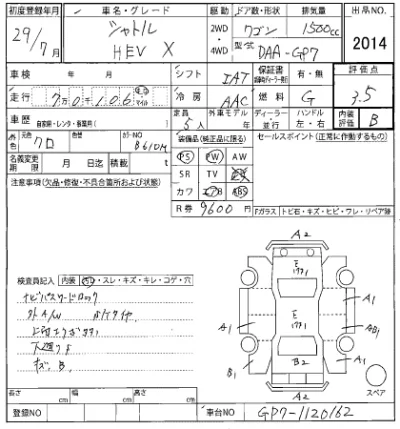 初度登録年月 車名・グレード 駆動 ドア数・形状 排気量 出品NO.
29/7月 シャトル 2WD ワゴン 1500cc 2014
HEV X 4WD 型式 DAA-GP7
車検 年 月 シフト IAT 保証書 有・無 評価点
走行 70106 km マイル 冷房 AAC 燃料 G 3.5
車歴 自家用・レンタ・事業用( ) 定員 5人 外車モデル 年 ディーラー・並行 ハンドル 左・右 内装評価 B
色 元色 クロ 色替 カラーNO B610M 装備品(純正品に限る) セールスポイント(正常に作動するもの)
名義変更期限 月 日迄 積載 t PS PW AW
注意事項(欠品・修復・不具合箇所および状態) SR TV
カワ エアB ABS
R券 9600円 Fガラス トビ石・キズ・ヒビ・ワレ・リペア跡
A2
検査員記入 内装 ・スレ・キズ・キレ・コゲ・穴
ナビパスワードロック
外A/W
A1 A1
A1 AB1
キズ、B.
B2
B1 A1
A2
スペア
長さ cm 幅 cm 高さ cm
登録NO 車台NO GP7-1120162